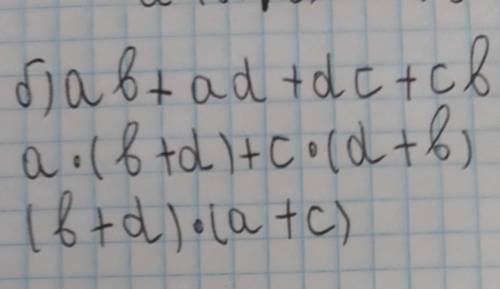 б) ab + ad + dc + cb
a·(b+d)+c·(d+b)
(b+d)·(a+c)